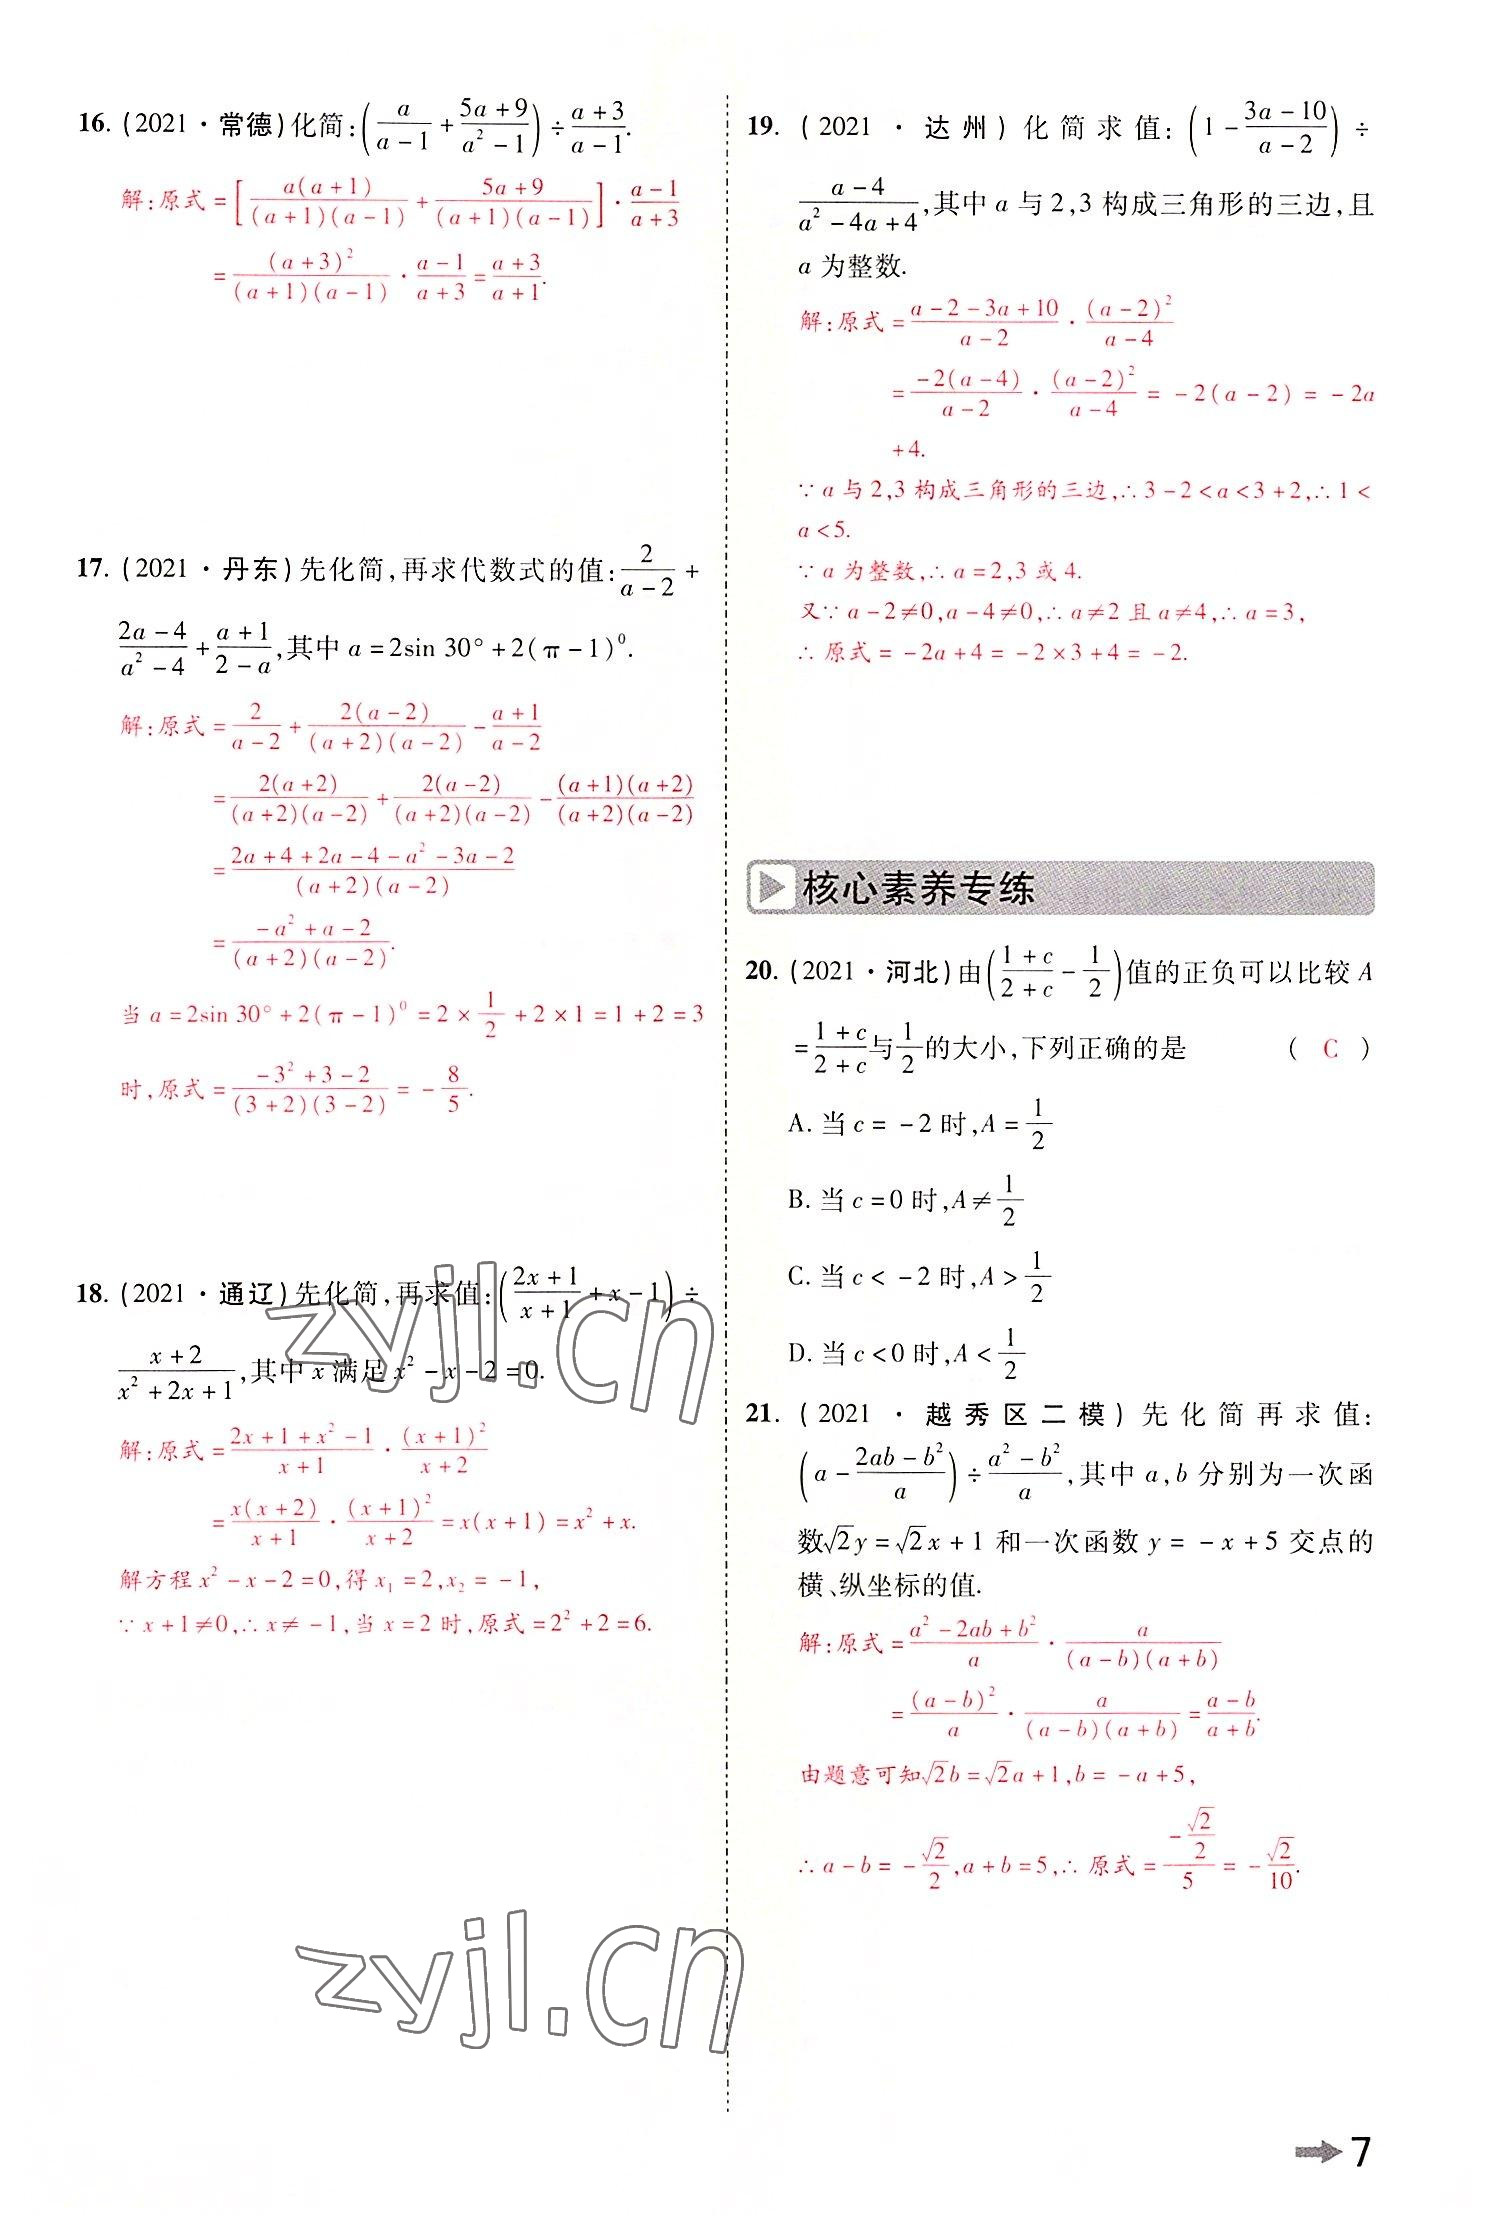 16. (2021·常德)化简:(a/(a-1)+(5a+9)/(a²-1))÷(a+3)/(a-1).
解:原式=[a(a+1)/((a+1)(a-1))+(5a+9)/((a+1)(a-1))]·(a-1)/(a+3)
=(a+3)²/((a+1)(a-1))·(a-1)/(a+3)=(a+3)/(a+1).
17. (2021·丹东)先化简,再求代数式的值:2/(a-2)+
(2a-4)/(a²-4)+(a+1)/(2-a),其中 a=2sin 30°+2(π-1)⁰.
解:原式=2/(a-2)+2(a-2)/((a+2)(a-2))-(a+1)/(a-2)
=2(a+2)/((a+2)(a-2))+2(a-2)/((a+2)(a-2))-(a+1)(a+2)/((a+2)(a-2))
=(2a+4+2a-4-a²-3a-2)/((a+2)(a-2))
=(-a²+a-2)/((a+2)(a-2)).
当 a=2sin 30°+2(π-1)⁰=2×1/2+2×1=1+2=3
时,原式=(-3²+3-2)/((3+2)(3-2))=-8/5.
18. (2021·通辽)先化简,再求值:((2x+1)/(x+1)+x-1)÷
(x+2)/(x²+2x+1),其中 x 满足 x²-x-2=0.
解:原式=(2x+1+x²-1)/(x+1)·(x+1)²/(x+2)
=x(x+2)/(x+1)·(x+1)²/(x+2)=x(x+1)=x²+x.
解方程 x²-x-2=0,得 x₁=2,x₂=-1,
∵x+1≠0,∴x≠-1,当 x=2 时,原式=2²+2=6.
zyjl.cn
zyjl.cn
19. (2021·达州)化简求值:(1-(3a-10)/(a-2))÷
(a-4)/(a²-4a+4),其中 a 与 2,3 构成三角形的三边,且
a 为整数.
解:原式=(a-2-3a+10)/(a-2)·(a-2)²/(a-4)
=-2(a-4)/(a-2)·(a-2)²/(a-4)=-2(a-2)=-2a
+4.
∵a 与 2,3 构成三角形的三边,∴3-2<a<3+2,∴1<
a<5.
∵a 为整数,∴a=2,3 或 4.
又∵a-2≠0,a-4≠0,∴a≠2 且 a≠4,∴a=3,
∴原式=-2a+4=-2×3+4=-2.
核心素养专练
20. (2021·河北)由((1+c)/(2+c)-1/2)值的正负可以比较 A
=(1+c)/(2+c)与1/2的大小,下列正确的是 ( C )
A. 当 c=-2 时,A=1/2
B. 当 c=0 时,A≠1/2
C. 当 c<-2 时,A>1/2
D. 当 c<0 时,A<1/2
21. (2021·越秀区二模)先化简再求值:
(a-(2ab-b²)/a)÷(a²-b²)/a,其中 a,b 分别为一次函
数√2y=√2x+1 和一次函数 y=-x+5 交点的
横、纵坐标的值.
解:原式=(a²-2ab+b²)/a·a/((a-b)(a+b))
=(a-b)²/a·a/((a-b)(a+b))=(a-b)/(a+b).
由题意可知√2b=√2a+1,b=-a+5,
∴a-b=-√2/2,a+b=5,∴原式=(-√2/2)/5=-√2/10.
7